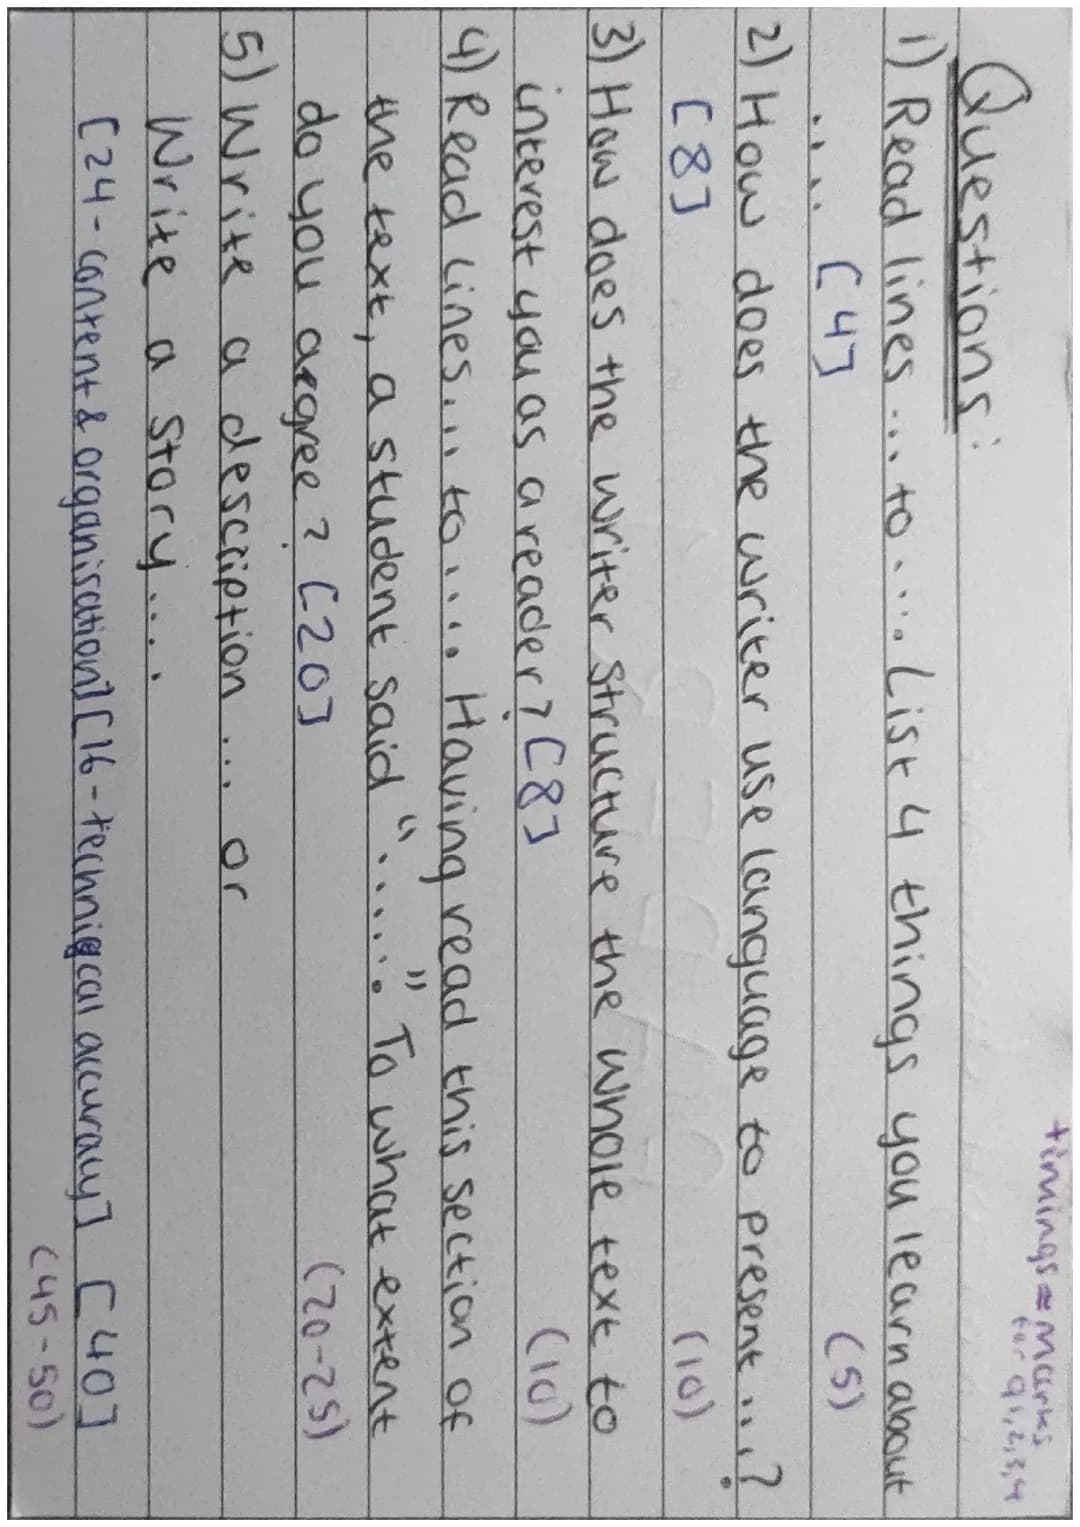 Questions:
timings ≈ marks
for q1,2,3,4
1) Read lines ... to .... List 4 things you learn about
.... [4] (5)
2) How does the writer use language to present ...?
[8] (10)
3) How does the writer structure the whole text to
interest you as a reader? [8] (10)
4) Read lines ... to .... Having read this section of
the text, a student said "......" To what extent
do you agree? [20] (20-25)
5) Write a description ... or
Write a story ....
[24 - content & organisation] [16 - technical accuracy] [40]
(45-50)